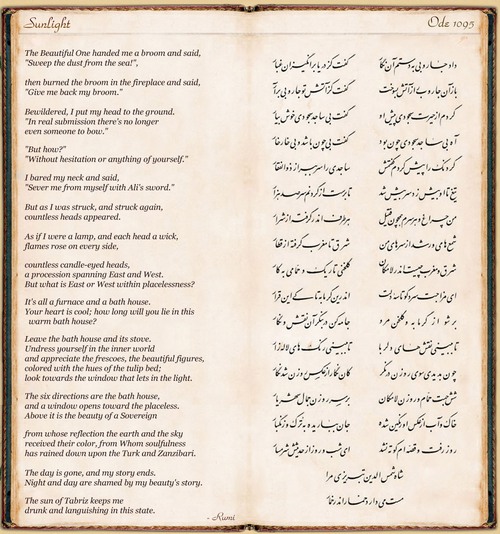 Sunlight
Ode 1095
The Beautiful One handed me a broom and said,
"Sweep the dust from the sea!",
then burned the broom in the fireplace and said,
"Give me back my broom."
Bewildered, I put my head to the ground.
"In real submission there's no longer
even someone to bow."
"But how?"
"Without hesitation or anything of yourself."
I bared my neck and said,
"Sever me from myself with Ali's sword."
But as I was struck, and struck again,
countless heads appeared.
As if I were a lamp, and each head a wick,
flames rose on every side,
countless candle-eyed heads,
a procession spanning East and West.
But what is East or West within placelessness?
It's all a furnace and a bath house.
Your heart is cool; how long will you lie in this
warm bath house?
Leave the bath house and its stove.
Undress yourself in the inner world
and appreciate the frescoes, the beautiful figures,
colored with the hues of the tulip bed;
look towards the window that lets in the light.
The six directions are the bath house,
and a window opens toward the placeless.
Above it is the beauty of a Sovereign
from whose reflection the earth and the sky
received their color, from Whom soulfulness
has rained down upon the Turk and Zanzibari.
The day is gone, and my story ends.
Night and day are shamed by my beauty's story.
The sun of Tabriz keeps me
drunk and languishing in this state.
- Rumi
داد جاروبی به دستم آن نگار گفت کز دریا برانگیزان غبار
باز آن جاروب را ز آتش بسوخت گفت کز آتش تو جاروبی برآر
کردم از حیرت سجودی پیش او گفت بی ساجد سجودی خوش بیار
آه بی ساجد سجودی چون بود گفت بی چون باشد و بی خارخار
گردنک را پیش کردم گفتمش ساجدی را سر ببر از ذوالفقار
تیغ تا او بیش زد سر بیش شد تا برست از گردنم سر صد هزار
من چراغ و هر سرم همچون فتیل هر طرف اندر گرفته از شرار
شمع های ورشد از سرهای من شرق تا مغرب گرفته از قطار
شرق و مغرب چیست اندر لامکان گلخنی تاریک و حمامی به کار
ای مزاجت سرد کو تاسه دلت اندر این گرمابه تا کی این قرار
برشو از گرمابه و گلخن مرو جامه کن دربنگر آن نقش و نگار
تا ببینی نقش های دلربا تا ببینی رنگ های لاله زار
چون بدیدی سوی روزن درنگر کان نگار از عکس روزن شد نگار
شش جهت حمام و روزن لامکان بر سر روزن جمال شهریار
خاک و آب از عکس او رنگین شده جان بباریده به ترک و زنگبار
روز رفت و قصه ام کوته نشد ای شب و روز از حدیثش شرمسار
شاه شمس الدین تبریزی مرا
مست می دارد خمار اندر خمار